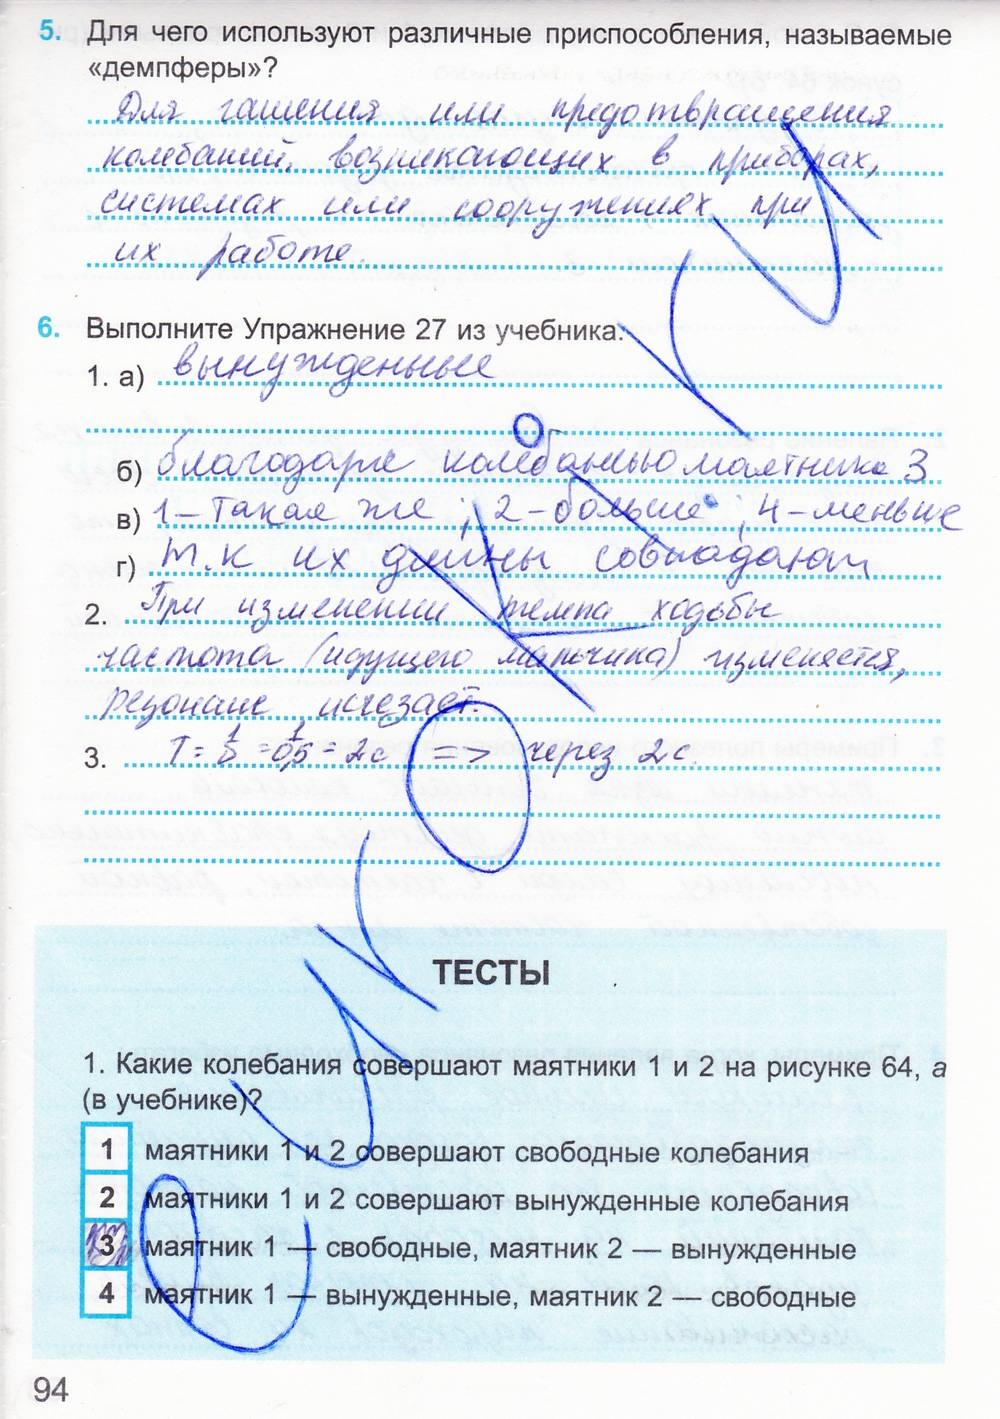 5. Для чего используют различные приспособления, называемые
«демпферы»?
Для гашения или предотвращения
колебаний, возникающих в приборах,
системах или сооружениях при
их работе.
6. Выполните Упражнение 27 из учебника.
1. а) вынужденные
б) благодаря колебанью маятника 3
в) 1 – такая же ; 2 – больше ; 4 – меньше
г) т.к их длины совпадают
2. При изменении темпа ходьбы
частота (идущего мальчика) изменяется,
резонанс исчезает.
3. T = 1/ν = 1/0,5 = 2с => через 2с.
ТЕСТЫ
1. Какие колебания совершают маятники 1 и 2 на рисунке 64, а
(в учебнике)?
1 маятники 1 и 2 совершают свободные колебания
2 маятники 1 и 2 совершают вынужденные колебания
3 маятник 1 — свободные, маятник 2 — вынужденные
4 маятник 1 — вынужденные, маятник 2 — свободные
94